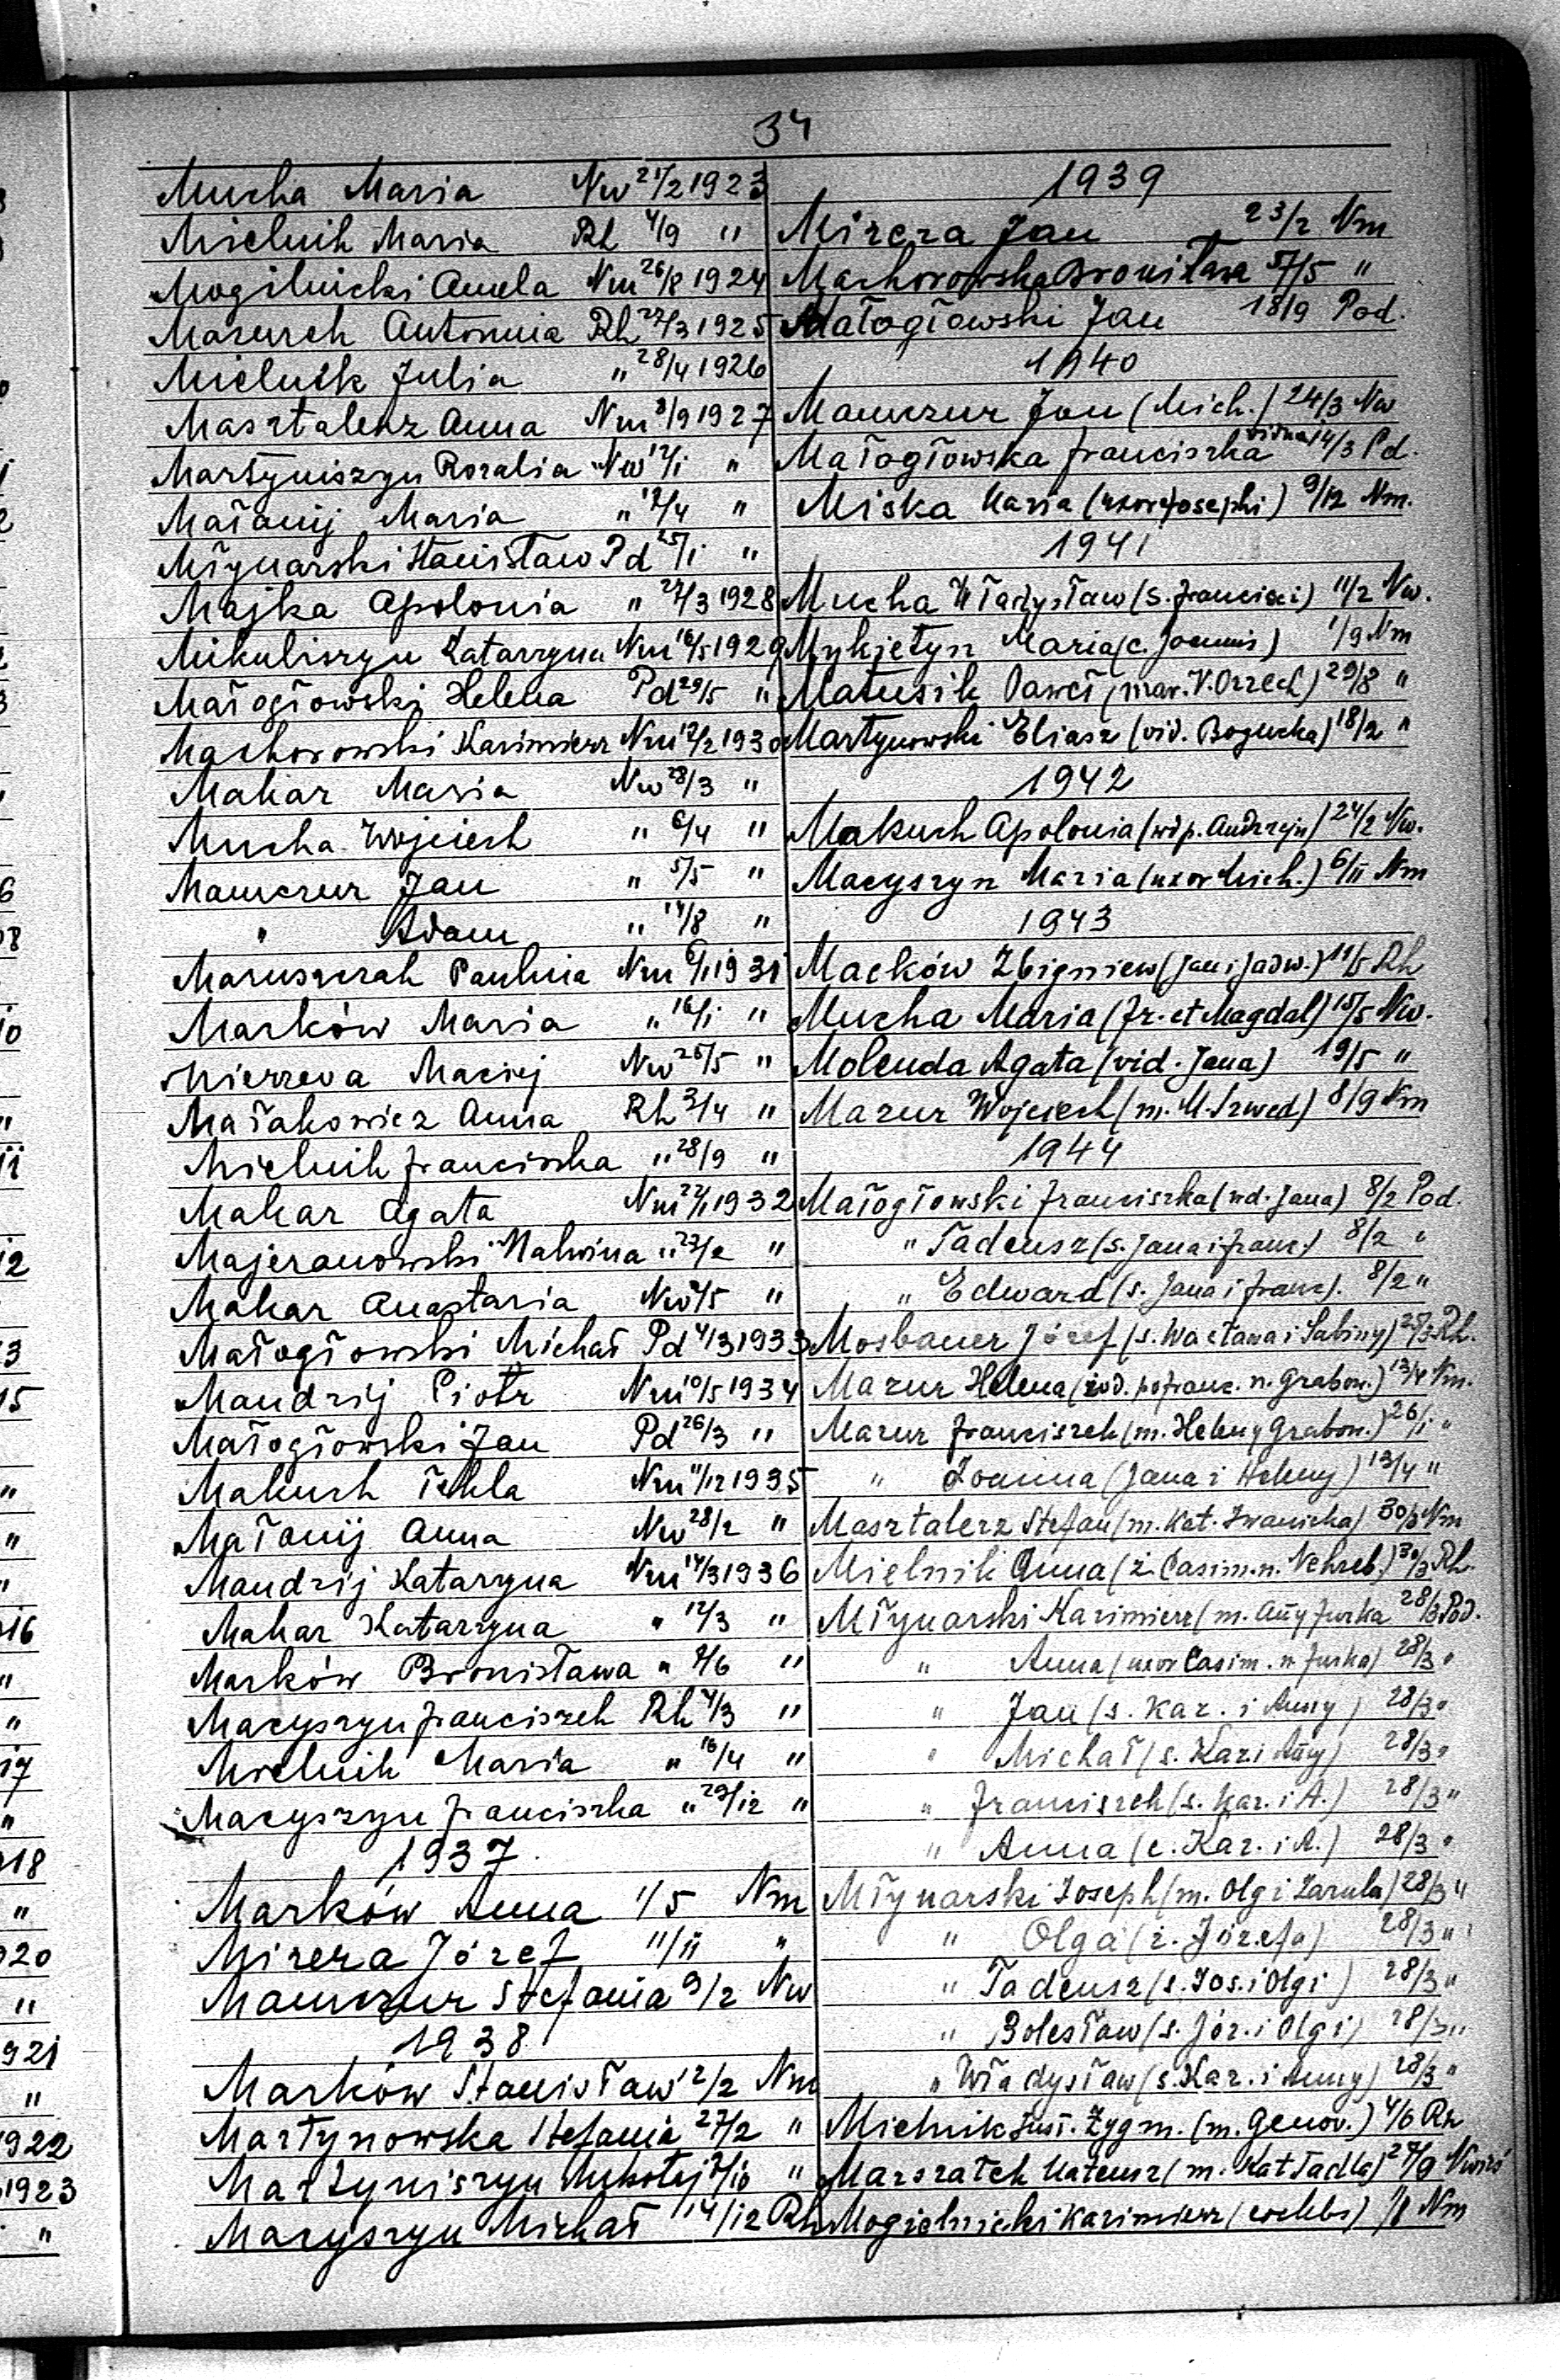 34
Mucha Maria Nw 21/2 1923
Mielnik Maria Rh 4/9 "
Mogilnicki Amela Nm 26/8 1924
Mazurek Antonia Rh 27/3 1925
Mielnik Julia " 28/4 1926
Masztalerz Anna Nm 3/9 1927
Martyniszyn Rozalia Nw 12/i "
Małanij Maria " 12/4 "
Młynarski Stanisław Pd 25/i "
Majka Apolonia " 27/3 1928
Mikuliszyn Katarzyna Nm 16/5 1929
Małogłowski Helena Pd 29/5 "
Machorowski Kazimierz Nm 12/2 1930
Makar Maria Nw 28/3 "
Mucha Wojciech " 6/4 "
Mamczur Jan " 5/5 "
" Adam " 14/8 "
Maruszczak Paulina Nm 1931
Marków Maria " 16/i "
Mierzeva Maciej Nw 25/5 "
Małakowicz Anna Rh 3/4 "
Mielnik Franciszka " 28/9 "
Makar Agata Nm 1932
Majeranowski Malwina " 27/2 "
Makar Anastazia Nw /5 "
Małogłowski Michał Pd 4/3 1933
Mandzij Piotr Nm 10/5 1934
Małogłowski Jan Pd 26/3 "
Makuch Tekla Nm 11/12 1935
Małanij Anna Nw 28/2 "
Mandzij Katarzyna Nm 14/3 1936
Makar Katarzyna " 12/3 "
Marków Bronisława " /6 "
Macyszyn Franciszek Rh 4/3 "
Mielnik Maria " 16/4 "
Macyszyn Franciszka " 29/12 "
1937
Marków Anna 1/5 Nm
Mizera Józef 11/ii "
Mamczur Stefania 9/2 Nw
1938
Marków Stanisław 2/2 Nm
Martynowska Stefania 27/2 "
Martyniszyn Mikołaj /10 "
Macyszyn Michał 14/12 Rh
1939
Mizera Jan 23/2 Nm
Machorowska Bronisława /5 "
Małogłowski Jan 18/9 Pod.
1940
Mamczur Jan (Mich.) 24/3 Nw
Małogłowska Franciszka vidua 14/3 Pd.
Miska Maria (uxor Josephi) 9/12 Nm.
1941
Mucha Władysław (s. Francisci) 11/2 Nw.
Mykietyn Maria (c. Joannis) 1/9 Nm
Matusik Paweł (mar. V. Orzech) 29/8 "
Martynowski Eliasz (vid. Bogucka) 18/2 "
1942
Makuch Apolonia (wd p. Andrzeju) 24/2 Nw.
Macyszyn Maria (uxor Mich.) 6/ii Nm
1943
Maćków Zbigniew (Jan i Jadw.) 11/5 Rh
Mucha Maria (Fr. et Magdal) 15/5 Nw.
Molenda Agata (vid. Jana) 19/5 "
Mazur Wojciech (m. M. Szwed) 8/9 Nm
1944
Małogłowski Franciszka (wd. Jana) 8/2 Pod.
" Tadeusz (s. Jana i Franc.) 8/2 "
" Edward (s. Jana i Franc). 8/2 "
Mosbauer Józef (s. Wacława i Sabiny) 25/3 Rh.
Mazur Helena (wd. po Franc. n. Grabow.) 13/4 Nm.
Mazur Franciszek (m. Heleny Grabow.) 26/i "
" Joanna (Jana i Heleny) 13/4 "
Masztalerz Stefan (m. Kat. Iwanicka) 30/3 Nm
Mielnik Anna (ż. Casim. n. Nehreb.) 30/3 Rh.
Młynarski Kazimierz (m. Anny Jurka 28/3 Pod.
" Anna (uxor Casim. n Jurka) 28/3 "
" Jan (s. Kaz. i Anny) 28/3 "
" Michał (s. Kaz i Any) 28/3 "
" Franciszek (s. Kaz. i A.) 28/3 "
" Anna (c. Kaz. i A.) 28/3 "
Młynarski Joseph (m. Olgi Zarula) 28/3 "
" Olga (ż. Józefa) 28/3 "
" Tadeusz (s. Jos. i Olgi) 28/3 "
" Bolesław (s. Józ. i Olgi) 28/3 "
" Władysław (s. Kaz. i Anny) 28/3 "
Mielnik Zygm. (m. Genov.) 4/6 Rh
Marszałek Mateusz (m. Kat Tadla) /9
Mogielnicki Kazimierz (coelebs) /8 Nm